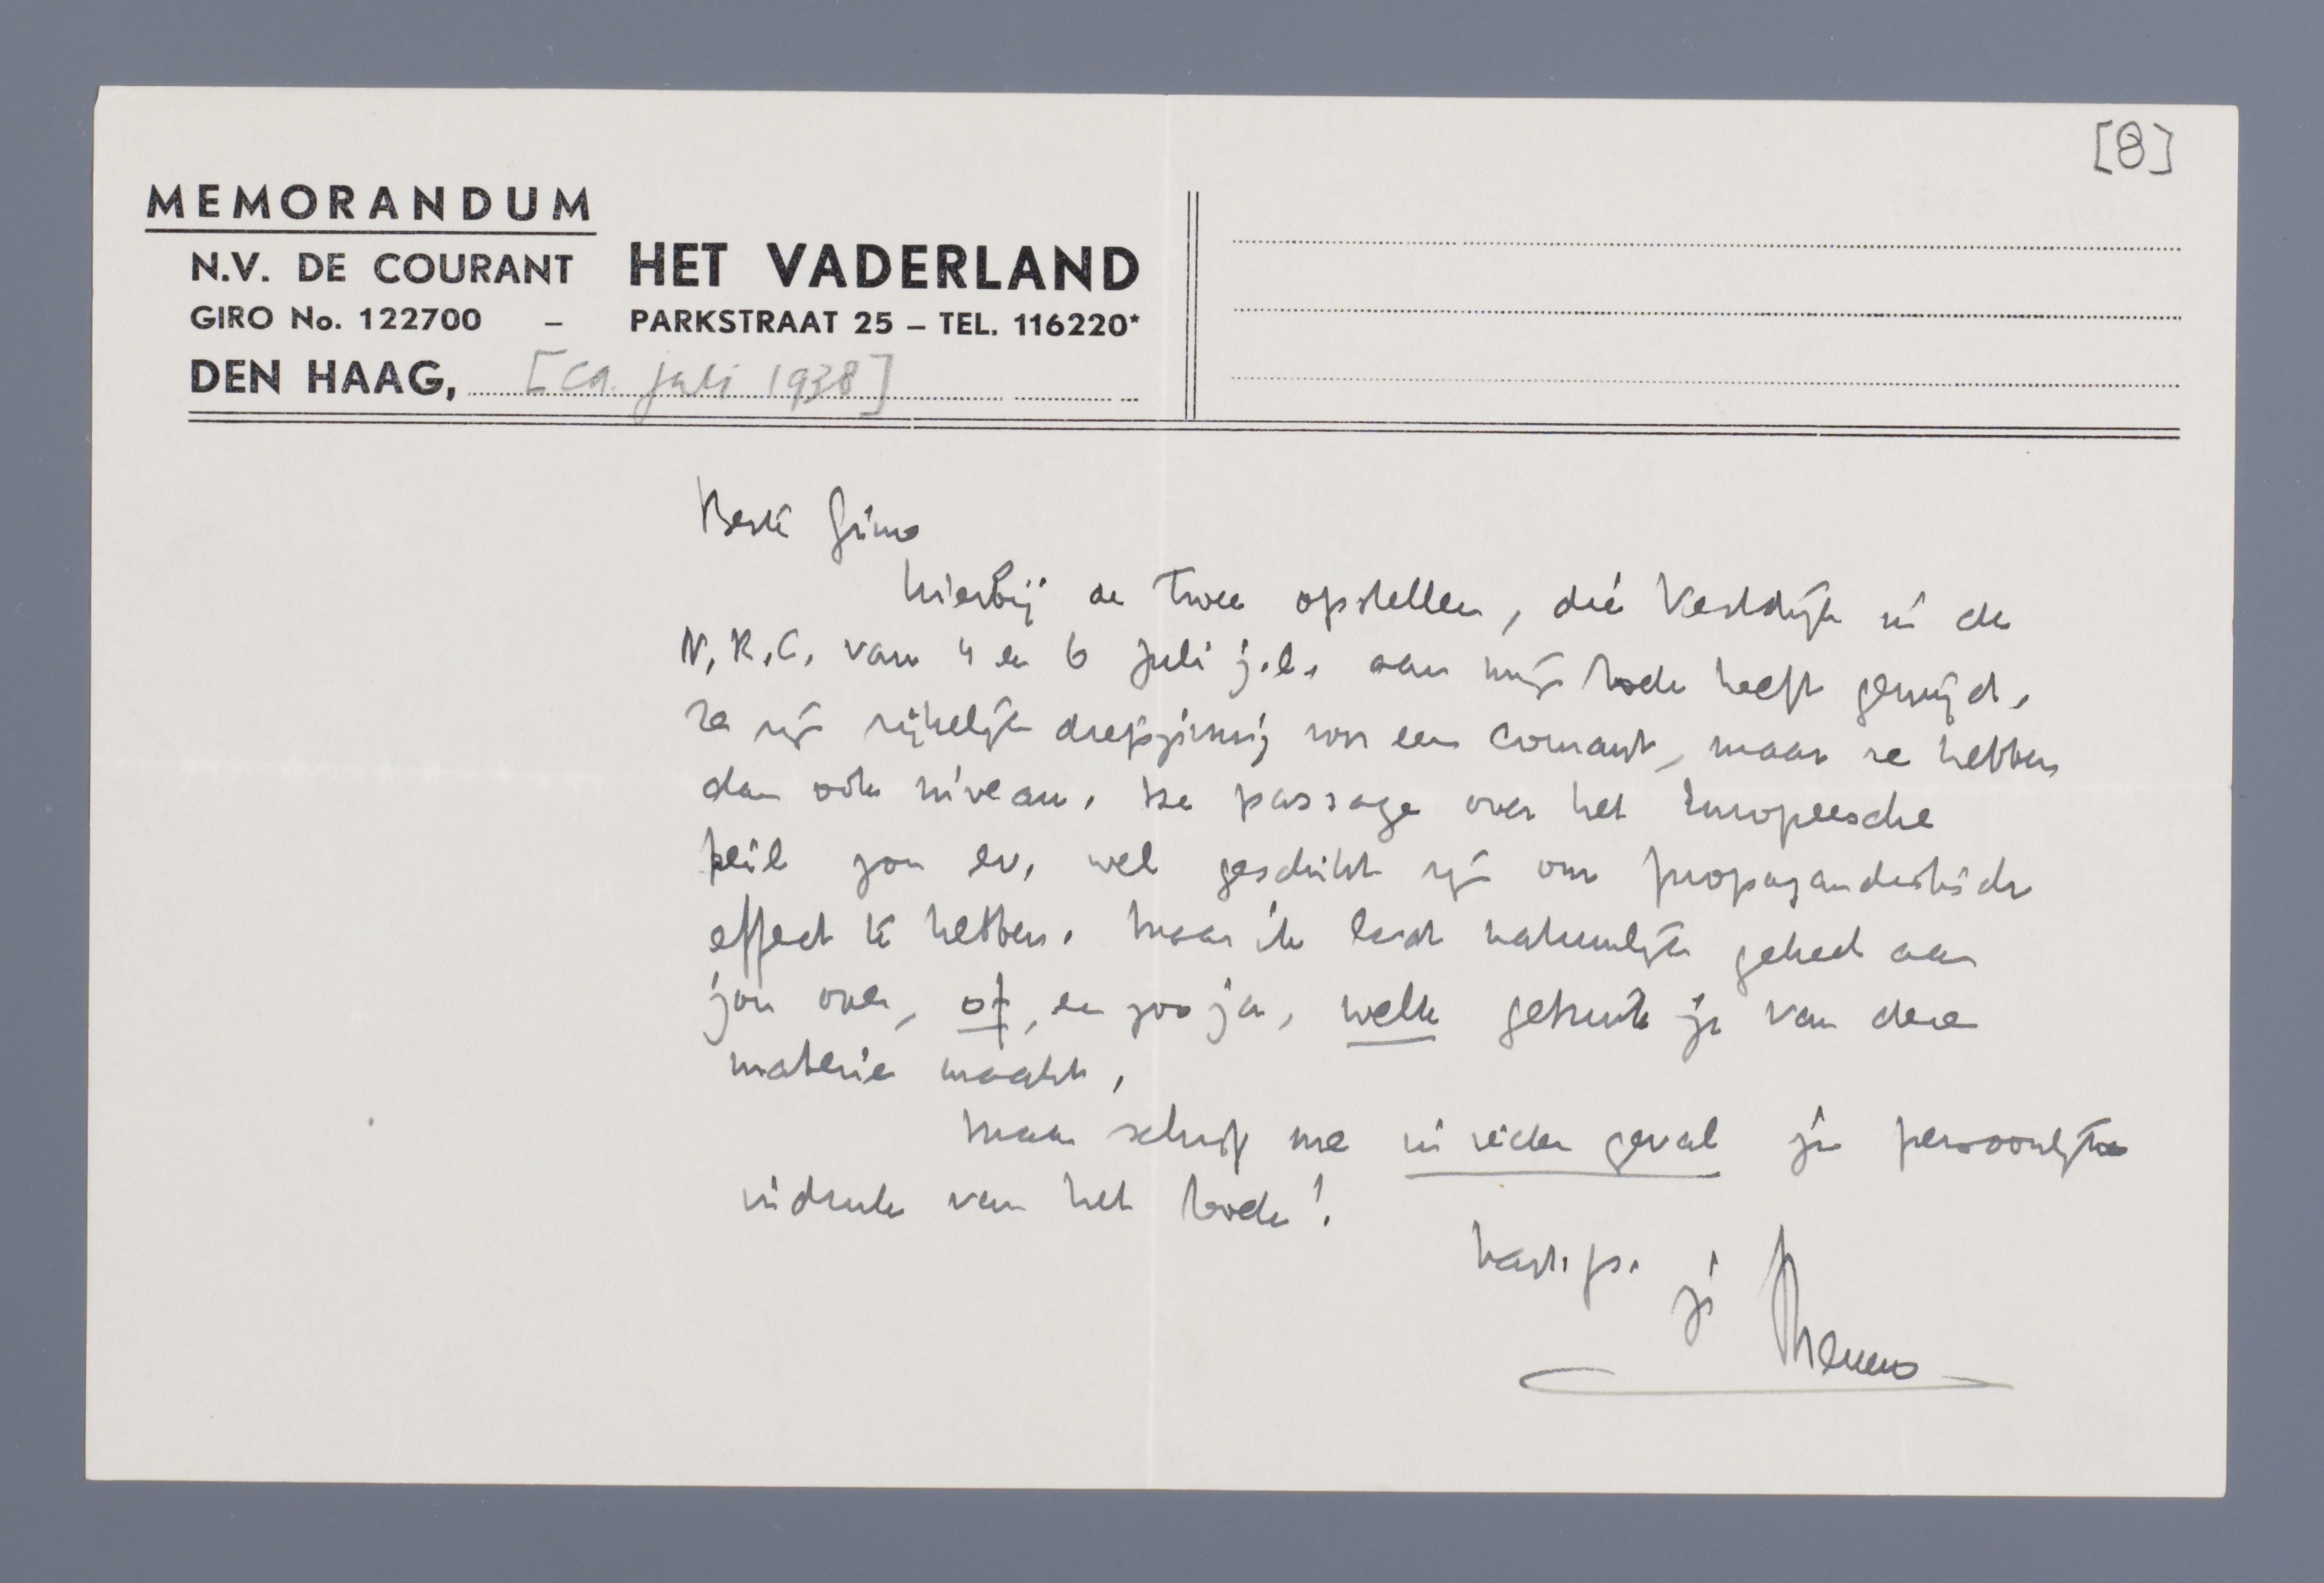 [8]
MEMORANDUM
N.V. DE COURANT HET VADERLAND
GIRO No. 122700 – PARKSTRAAT 25 – TEL. 116220*
DEN HAAG, [ca. juli 1938]
Beste Guno
hierbij de twee opstellen, die Vestdijk in de
N.R.C. van 4 en 6 Juli j.l. aan mijn boek heeft gewijd.
Ze zijn rijkelijk diepzinnig voor een courant, maar ze hebben
dan ook niveau. De passage over het Europeesche
peil zou ev. wel geschikt zijn om propagandistisch
effect te hebben. Maar ik laat natuurlijk geheel aan
jou over, of, en zoo ja, welk gebruik je van deze
materie maakt.
Maar schrijf me in ieder geval je persoonlijke
indruk van het boek!
hart. gr.
je Menno